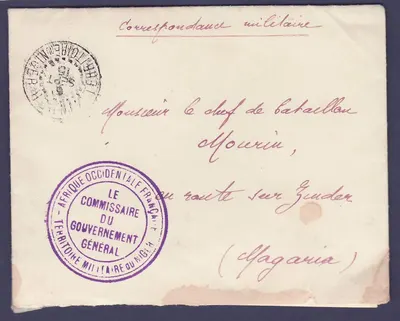 Correspondance militaire
Monsieur le chef de bataillon
Mourin,
en route sur Zinder
(Magaria)
AFRIQUE OCCIDENTALE FRANÇAISE
LE
COMMISSAIRE
DU
GOUVERNEMENT
GÉNÉRAL
TERRITOIRE MILITAIRE DU NIGER